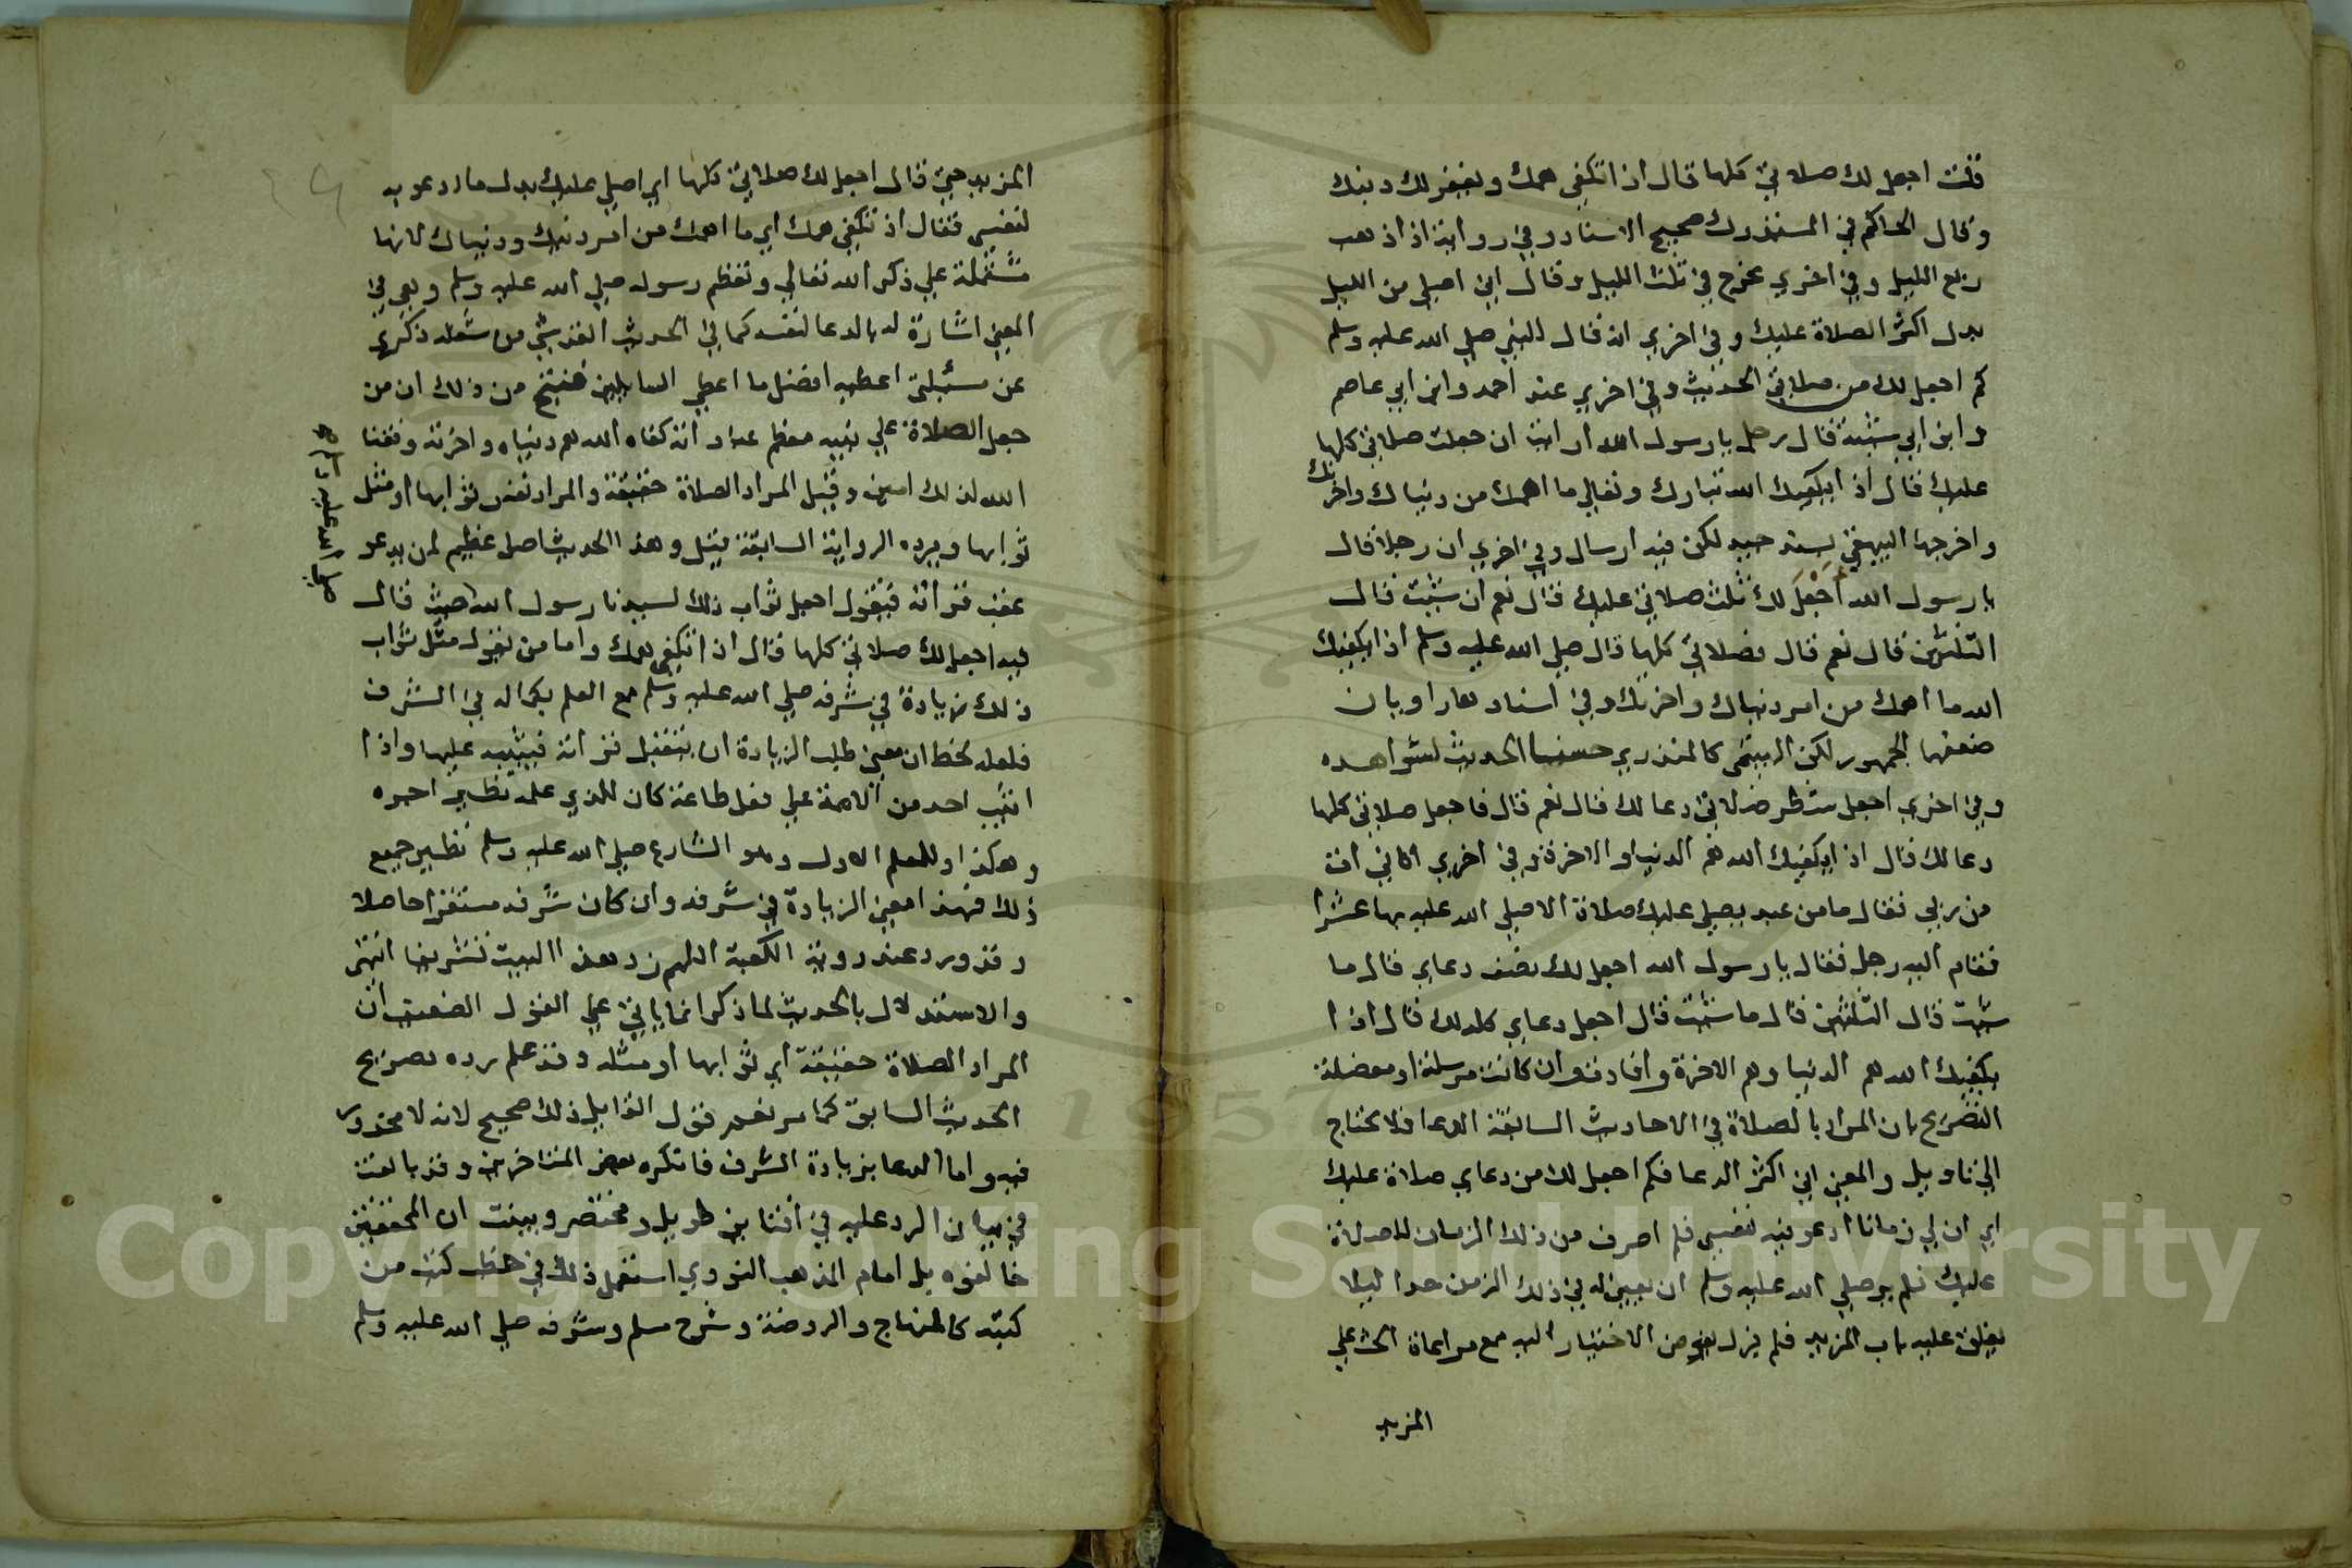 قلت اجعل لك صلاتي كلها قال اذا تكفى همك ويغفر لك ذنبك
وقال الحاكم في المستدرك صحيح الاسناد وفي رواية اذا ذهب
ربع الليل وفي اخرى يخرج في ثلث الليل وقال اني اصلي من الليل
بدل اكثر الصلاة عليك وفي اخرى انه قال للنبي صلي الله عليه وسلم
كم اجعل لك من صلاتي الحديث وفي اخري عند احمد وابن ابي عاصم
وابن ابي شيبة قال رجل يا رسول الله ارايت ان جعلت صلاتي كلها
عليك قال اذا يكفيك الله تبارك وتعالي ما اهمك من دنياك واخرتك
واخرجها البيهقي بسند جيد لكن فيه ارسال وفي اخري ان رجلا قال
يا رسول الله أجعل لك ثلث صلاتي عليك قال نعم ان شئت قال
الثلثين قال نعم قال فصلاتي كلها قال صلي الله عليه وسلم اذا يكفيك
الله ما اهمك من امر دنياك واخرتك وفي اسناد هذا راويان
ضعفها الجمهور لكن الهيثمي كالمنذري حسنا الحديث لشواهده
وفي اخري اجعل شطر صلاتي دعا لك قال نعم قال فاجعل صلاتي كلها
دعا لك قال اذا يكفيك الله هم الدنيا والاخرة وفي اخري اتاني ات
من ربي فقال ما من عبد يصلي عليك صلاة الا صلي الله عليه بها عشرا
فقام اليه رجل فقال يا رسول الله اجعل لك نصف دعاي قال ما
شئت قال الثلثين قال ما شئت قال اجعل دعاي كله لك قال اذا
يكفيك الله هم الدنيا وهم الاخرة وافادت وان كانت مرسلة او معضلة
التصريح بان المراد بالصلاة في الاحاديث السابقة الدعا فلا يحتاج
الي تاويل والمعني اني اكثر الدعا فكم اجعل لك من دعاي صلاة عليك
اي ان لي زمانا ادعو فيه لنفسي فكم اصرف من ذلك الزمان للصلاة
عليك فلم ير صلي الله عليه وسلم ان يعين له في ذلك الزمن حدا ليلا
يغلق عليه باب المزيد فلم يزل يفوض الاختيار اليه مع مراعاة الحث علي
المزيد
المزيد حتي قال اجعل لك صلاتي كلها اي اصلي عليك بدل ما ادعو به
لنفسي فقال اذا تكفي همك اي ما اهمك من امر دينك ودنياك لانها
مشتملة علي ذكر الله تعالي وتعظيم رسوله صلي الله عليه وسلم وهي في
المعني اشارة له بالدعا لنفسه كما في الحديث القدسي من شغله ذكري
عن مسئلتي اعطيه افضل ما اعطي السايلين فنتج من ذلك ان من
جعل الصلاة علي نبيه معظم عباداته كفاه الله هم دنياه واخرته وفقنا
الله لذلك امين وقيل المراد الصلاة حقيقة والمراد نفس ثوابها او مثل
ثوابها ويرده الرواية السابقة قيل وهذا الحديث اصل عظيم لمن يدعو
عقب قراته فيقول اجعل ثواب ذلك لسيدنا رسول الله حيث قال
فيه اجعل لك صلاتي كلها قال اذا تكفي همك واما من يقول مثل ثواب
ذلك زيادة في شرفه صلي الله عليه وسلم مع العلم بكماله في الشرف
فلعله لحظ ان معني طلب الزيادة ان يتقبل قراته فيثيبه عليها واذا
اثيب احد من الامة علي فعل طاعة كان للذي علمه نظير اجره
وهكذا وللمعلم الاول وهو الشارع صلي الله عليه وسلم نظير جميع
ذلك فهذا معني الزيادة في شرفه وان كان شرفه مستقرا حاصلا
وقد ورد عند روية الكعبة اللهم زد هذا البيت تشريفا انتهى
والاستدلال بالحديث لما ذكر انما ياتي علي القول الضعيف ان
المراد الصلاة حقيقة اي ثوابها او مثله وقد علم رده بصريح
الحديث السابق كما مر نعم قول القايل ذلك صحيح لانه لا محذور
فيه واما الدعا بزيادة الشرف فانكره بعض المتاخرين وقد بالغت
في بيان الرد عليه في افتاين طويل ومختصر وبينت ان المحققين
خالفوه بل امام المذهب النووي استعمل ذلك في خطب كتب من
كتبه كالمنهاج والروضة وشرح مسلم وشرفه صلي الله عليه وسلم
Copyright © King Saud University
1957